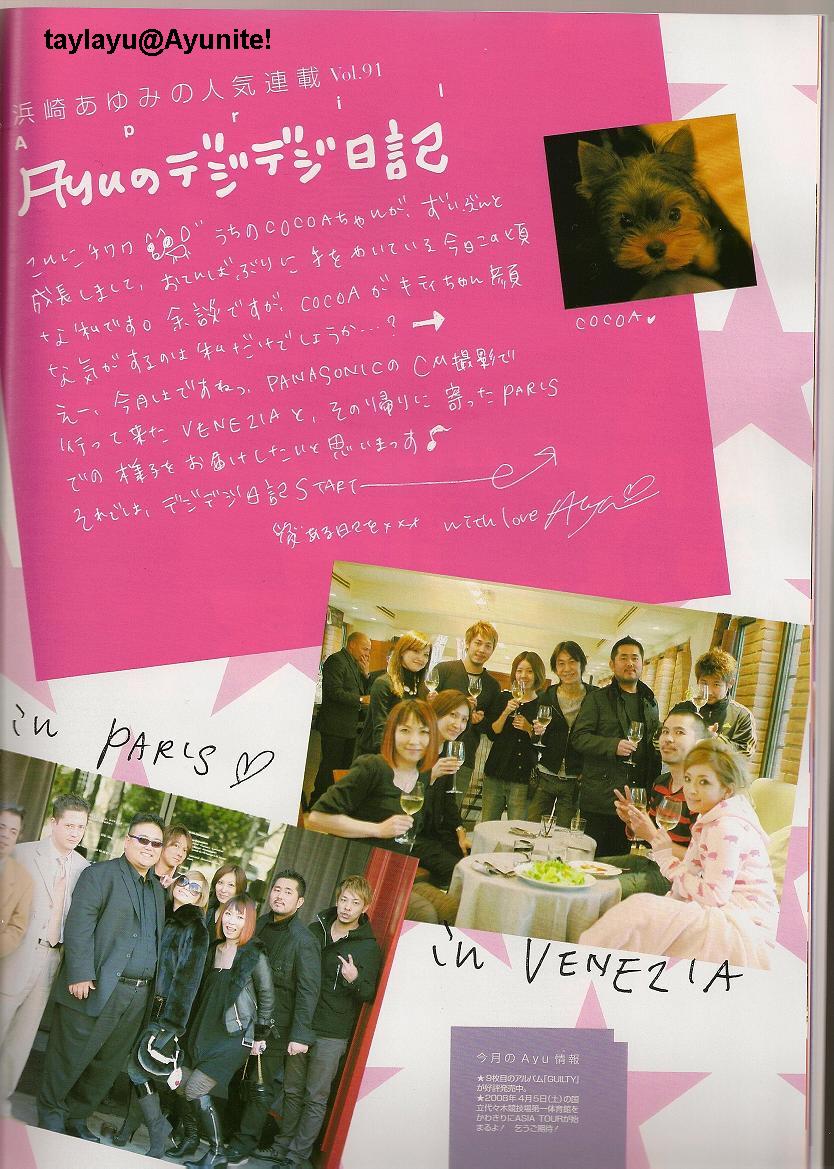 taylayu@Ayunite!
浜崎あゆみの人気連載 Vol.91
April
Ayuのデジデジ日記
こんにチワワ うちのCOCOAちゃんが、ずいぶんと
成長しまして、おてんばぶりに手をやいている今日この頃
な私です。余談ですが、COCOAがキティちゃん顔
な気がするのは私だけでしょうか…？→
えー、今月はですねっ、PANASONICのCM撮影で
行って来たVENEZIAと、その帰りに寄ったPARIS
での様子をお届けしたいと思いまっす♪
それでは、デジデジ日記START
愛ある日々を××× with love Ayu♡
COCOA♥
in PARIS♡
in VENEZIA
今月のAyu情報
★9枚目のアルバム「GUILTY」
が好評発売中。
★2008年4月5日(土)の国
立代々木競技場第一体育館を
かわきりにASIA TOURが始
まるよ！ 乞うご期待！